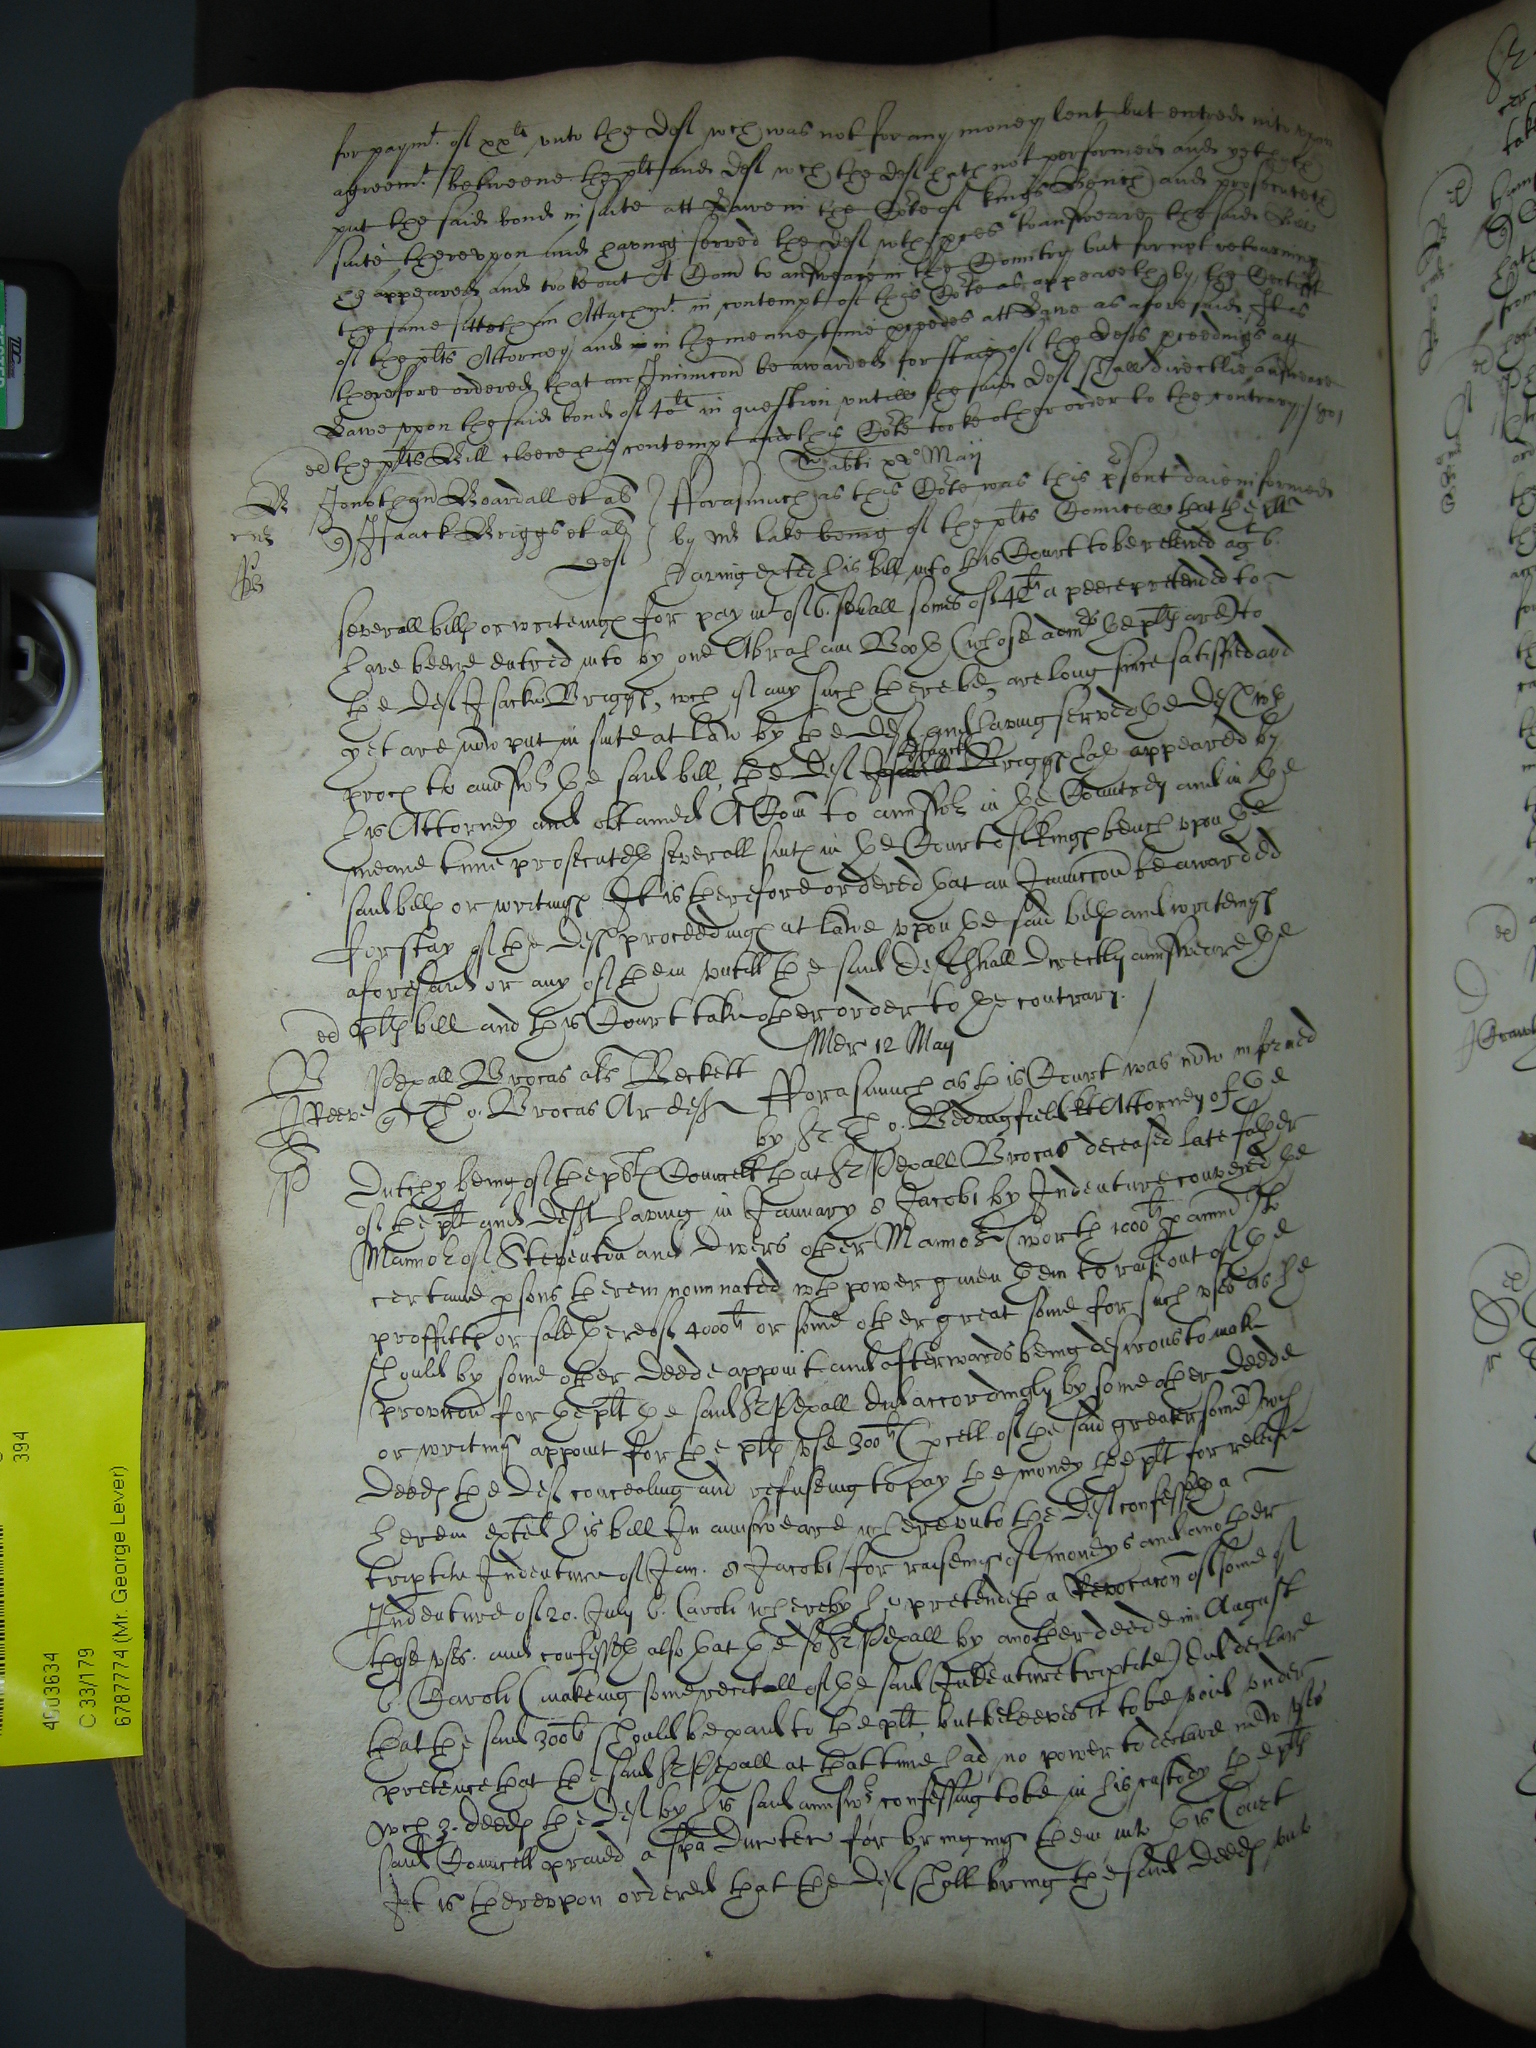 for paymt. of xxli vnto the Deft wch was not for any money lent but entred into vpon
agreemt. betweene the plt and Deft wch the Deft hath not performed and yet hath
put the said bond in suite att Lawe in the Côte of kings Bench and prosecuteth
suite therevpon and having served the Deft wth pces to answeare the said Bill
he appeared and tooke out A Com to answeare in the Countrey but for not retourning
the same sitteth in Attachmt. in contempt of this Côte as appeareth by the Certifft
of the plts Attorney and in the meane time pceedes att Lawe as aforesaid It is
therefore ordered that an Iniunccon be awarded for staie of the Defts pceedings att
Lawe vpon the said bond of 40li in question vntill the said Deft shall directlie answeare
the plts Bill cleere his contempt and this Côte take other order to the contrary
Sabbti xvo Maij
Jonathan Boardall et al Forasmuch as this Côte was this psent daie informed
Isaack Briggs et al by Mr Lake being of the plts Councell that the plt
Deft having exted his bill into this Court to be releived agt 6.
severall bills or writeings for paymt of 6. severall somes of 4li a peece pretended to
have beene entred into by one Abraham Booth (whose admrs the plts are) to
the Deft Isacke Briggs, wch if any such there be, are long since satisfied and
yet are now put in suite at law by the Deft and having served the Defts wth
proces to answer the said bill, the Deft Isaack Briggs hath appeared by
his Attorney and obtained A Com to answer in the Countrey and in the
meane time prosecuteth severall suits in the Court of kings bench vpon the
said bills or writings It is therefore ordered that an Iniunccon be awarded
for stay of the Defts proceedings at Lawe vpon the said bills and writeings
aforesaid or any of them vntill the said Deft shall directly answeare the
plts bill and this Court take other order to the contrary.
Mer 12 May
Pexall Brocas als Beckett Forasmuch as this Court was now informed
Tho. Brocas Ar deft by Sr Tho. Bedingfield kt Attorney of the
Dutchy being of the plts Councell that Sr Pexall Brocas deceased late father
of the plt and Deft having in January 8 Jacobi by Indenture conveyed the
Mannor of Steventon and divers other Mannors (worth 1000li p annu) to
certaine psons therein nominated wth power given them to raise out of the
proffitts or sale thereof 4000li or some other great some for such vses as he
should by some other deede appoint and afterwards being desirous to make
provicon for the plt the said Sr Pexall did accordingly by some other deede
or writing appoint for the plts vse 300li (pcell of the said greater some) wch
deeds the Deft concealing and refuseing to pay the money the plt for releife
therein exted his bill In answeare wherevnto the Deft confesseth a
triptite Indenture of Jan. 8 Jacobi for raiseing of moneys and another
Indenture of 20. July 6. Caroli whereby he pretendeth a Revocacon of some of
those vses. and confesseth also that the sd Sr Pexall by another deede in August
6. Caroli (makeing some recitall of the said Indenture triptite) did declare
that the said 300li should be paid to the plt, but beleeves it to be void vnder
pretence that the said Sr Pexall at that time had no power to declare new vses
wch 3. deeds the Deft by his said answer confessing to be in his custody the plts
said Councell praied a spa Ducten for bringing them into this Court
It is therevpon ordered that the Deft shall bring the said deeds into
394
4003634
C 33/179
6787774 (Mr. George Lever)